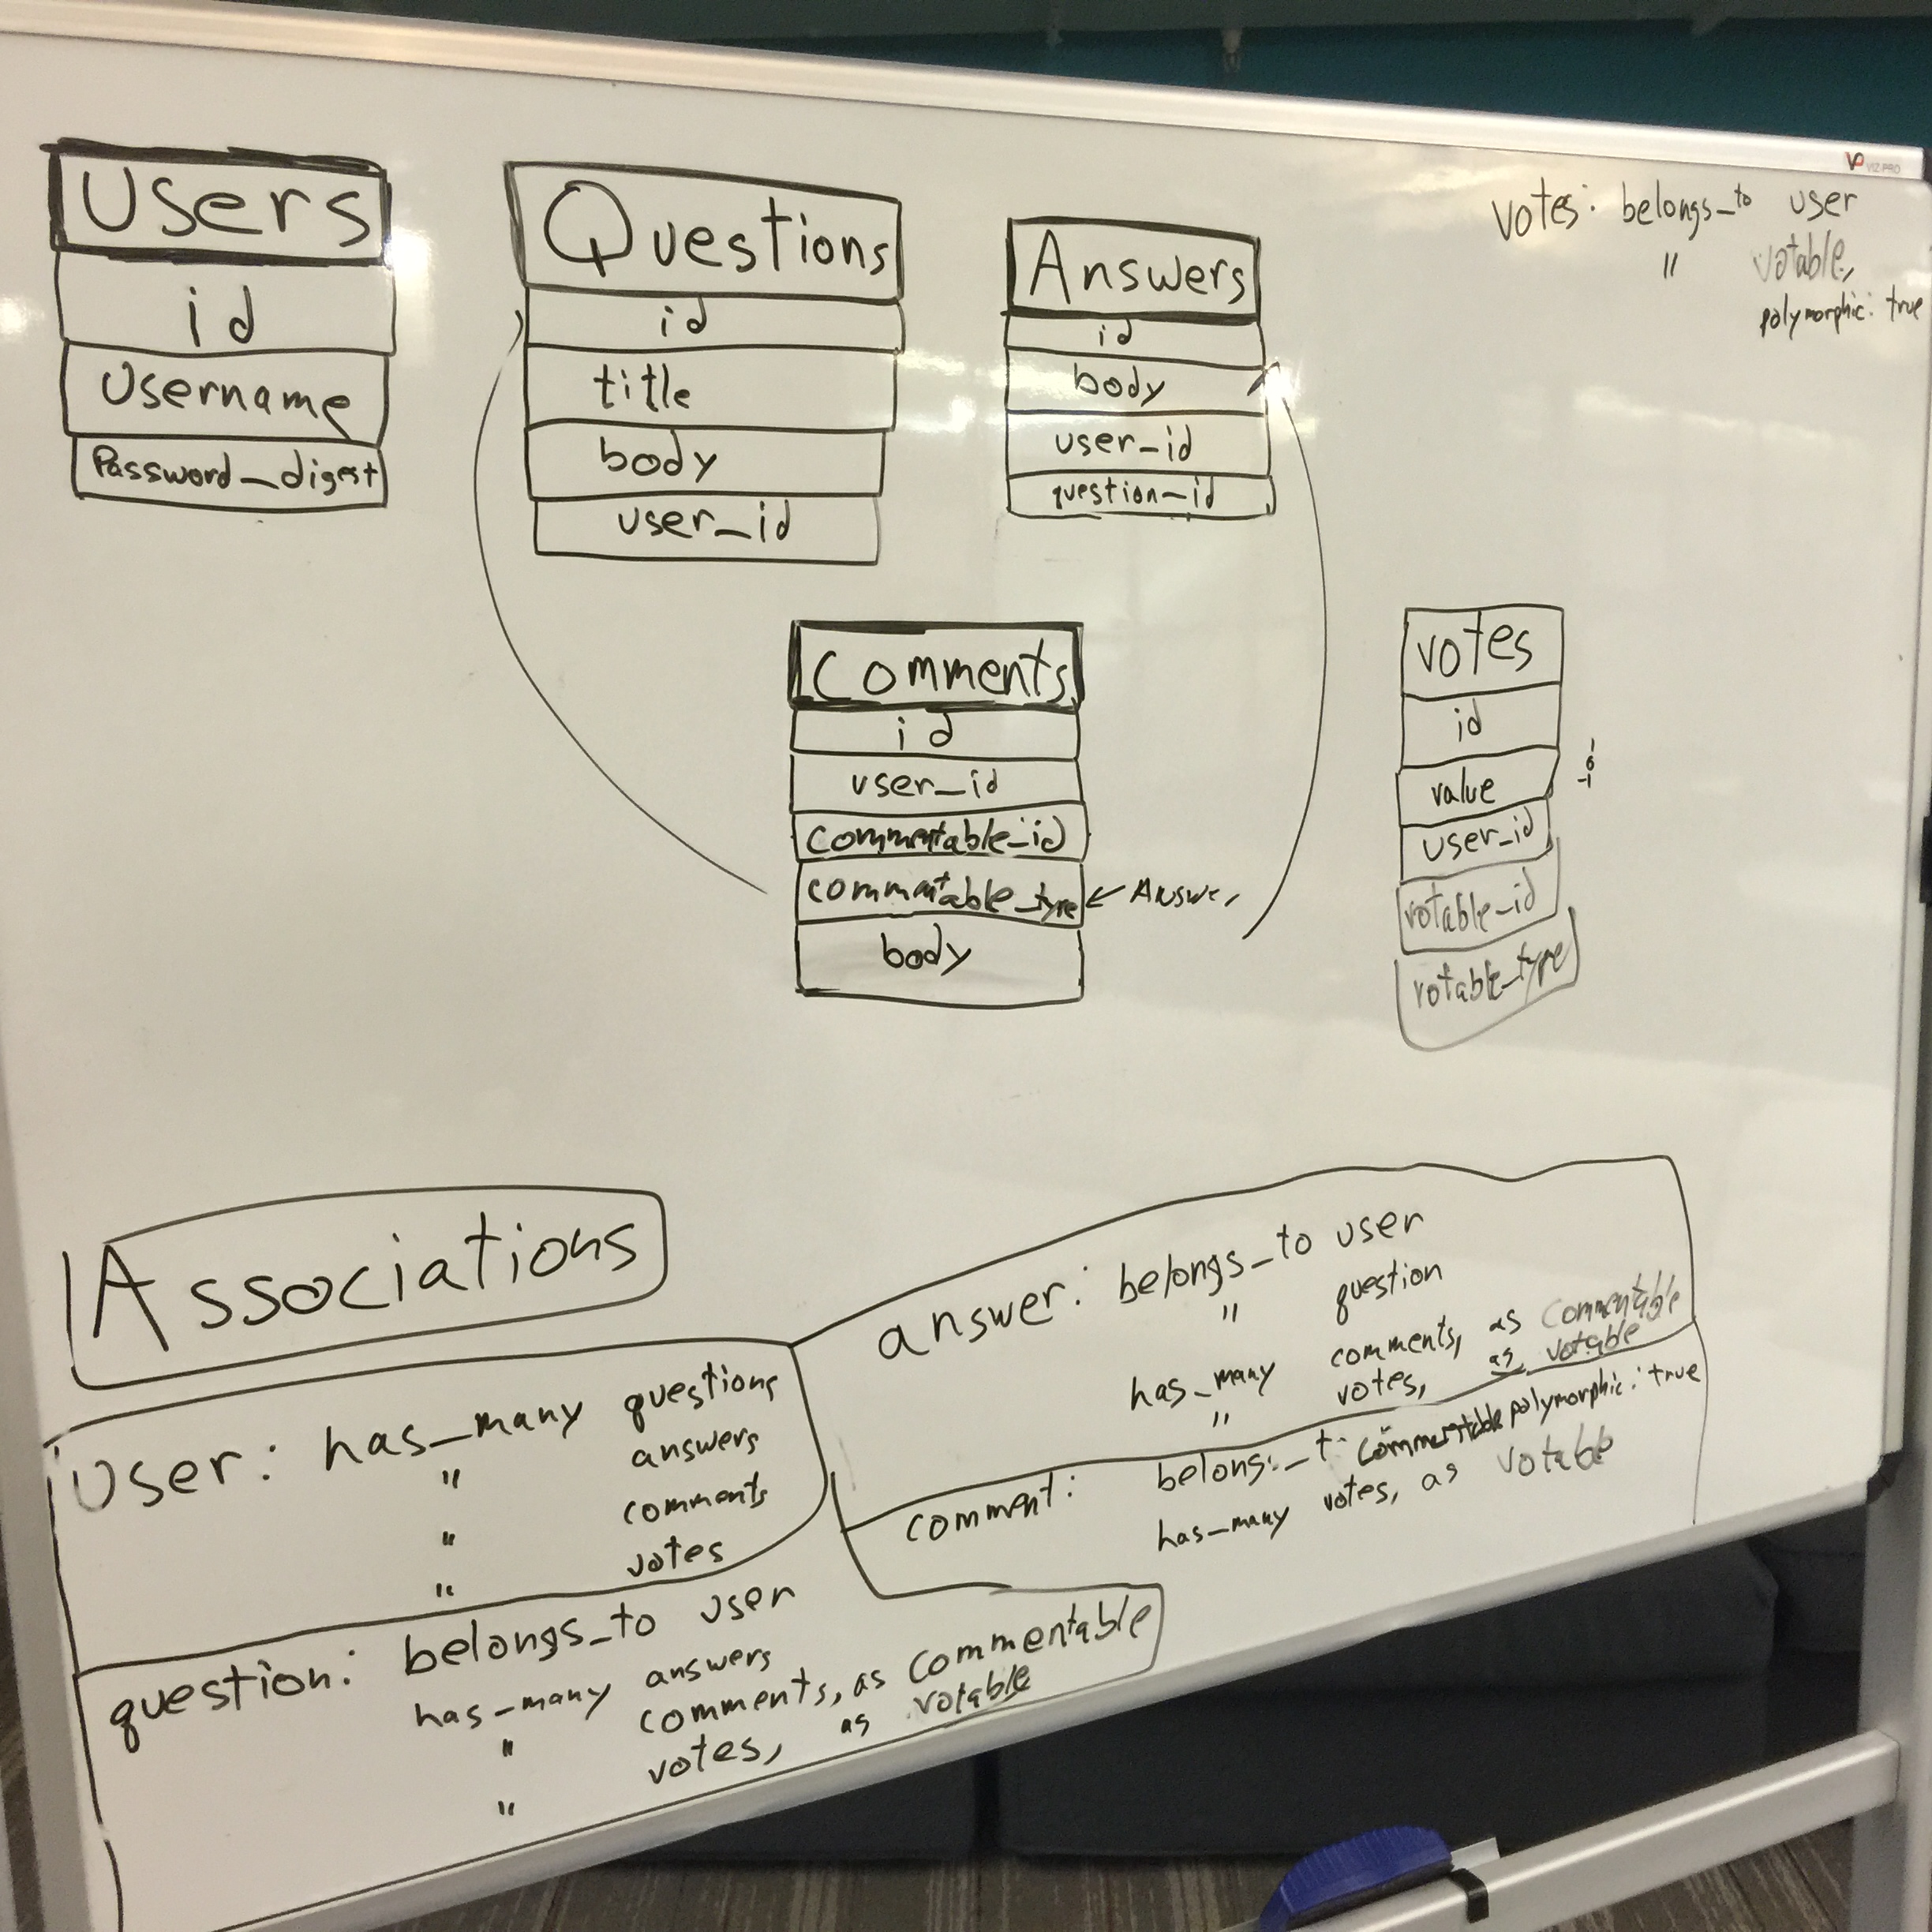 VIZ-PRO
Users
id
Username
Password_digest
Questions
id
title
body
user_id
Answers
id
body
user_id
question_id
votes: belongs_to user
" votable,
polymorphic: true
Comments
id
user_id
commentable_id
commentable_type ← Answer
body
votes
id
value
1
0
-1
user_id
votable_id
votable_type
Associations
User: has_many questions
" answers
" comments
" votes
question: belongs_to user
has_many answers
" comments, as commentable
" votes, as votable
answer: belongs_to user
" question
has_many comments, as commentable
" votes, as votable
comment: belongs_to commentable polymorphic: true
has_many votes, as votable